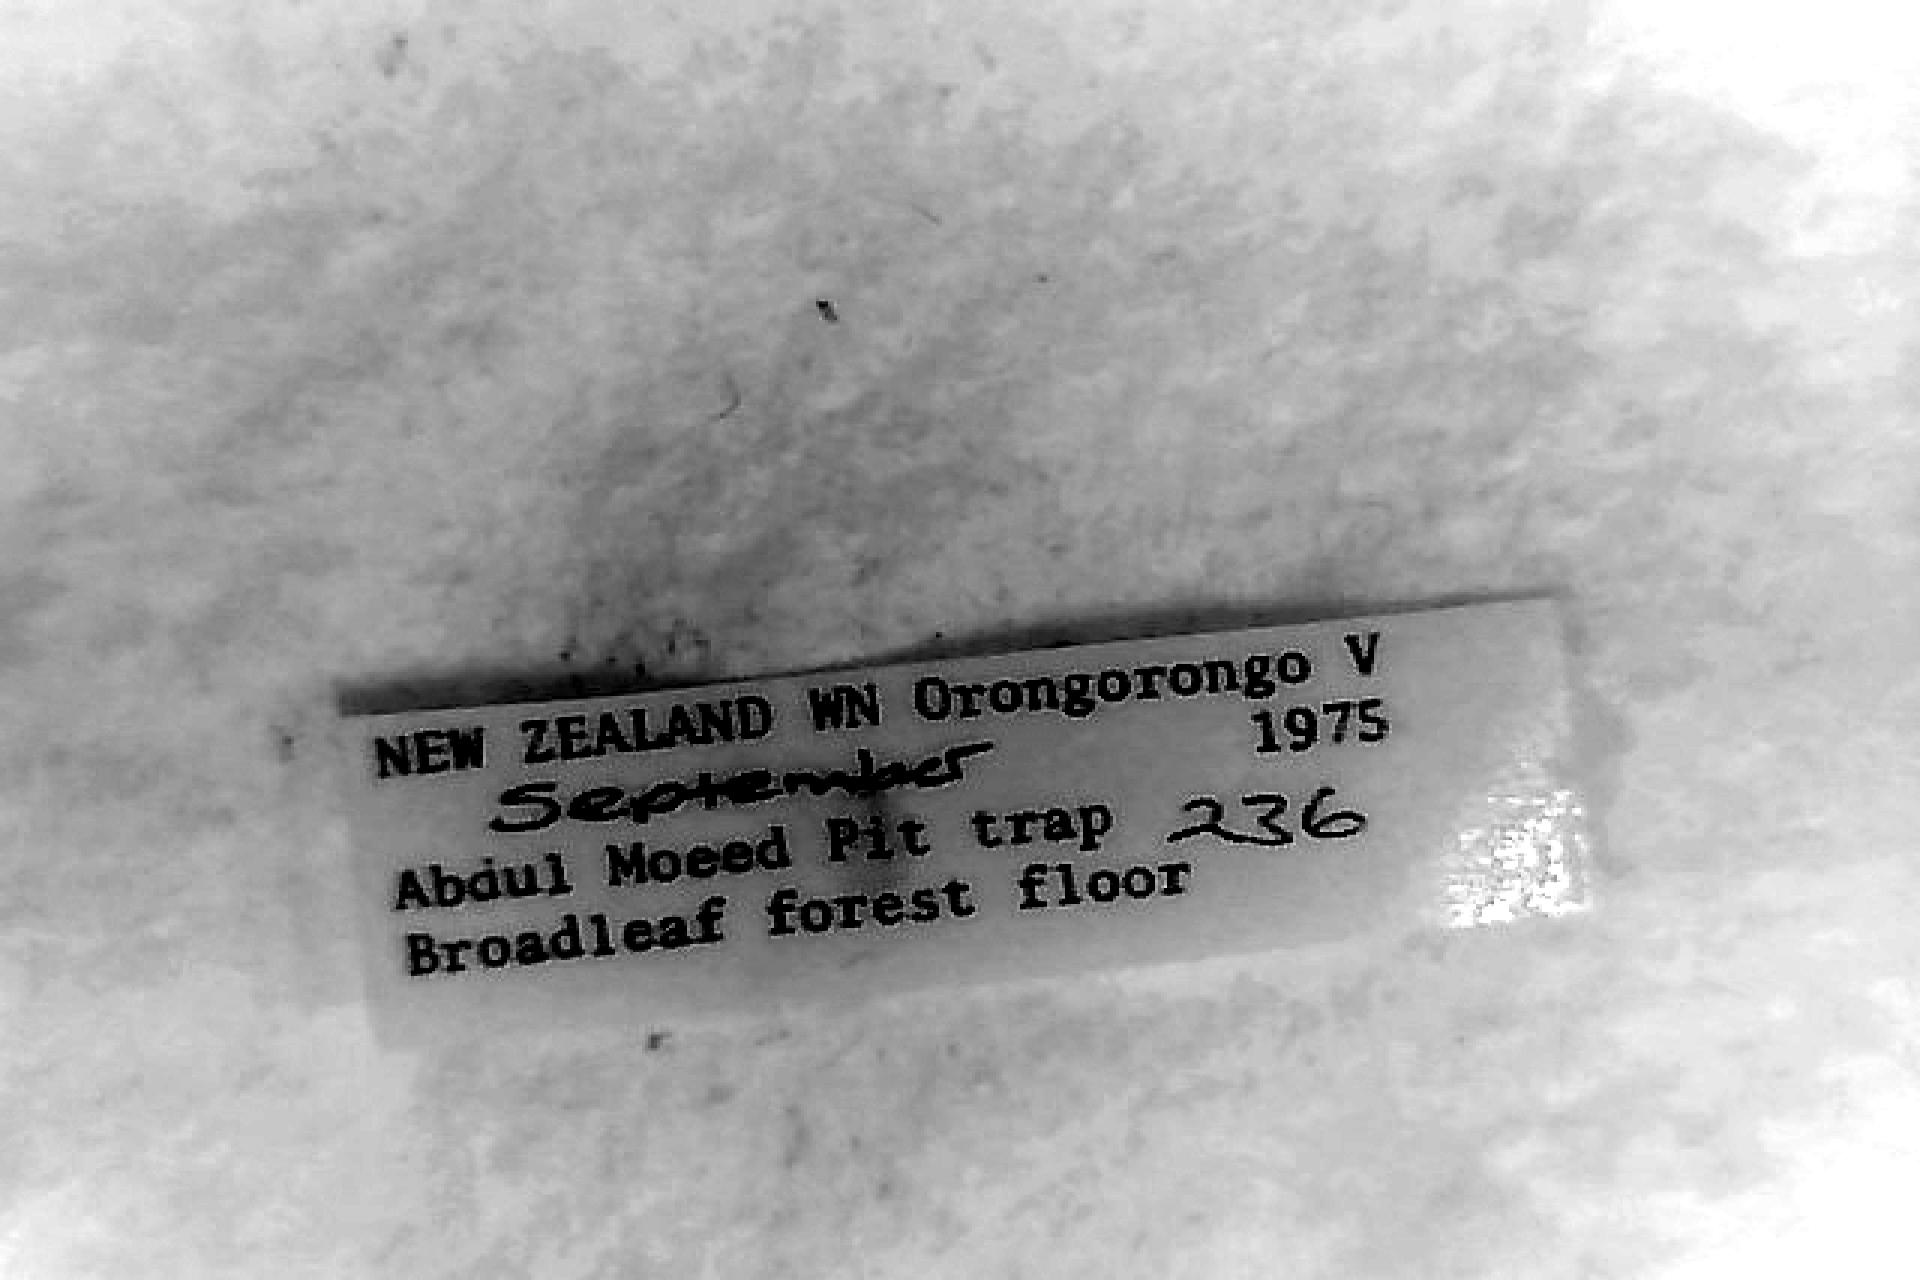 NEW ZEALAND WN Orongorongo V
September 1975
Abdul Moeed Pit trap 236
Broadleaf forest floor